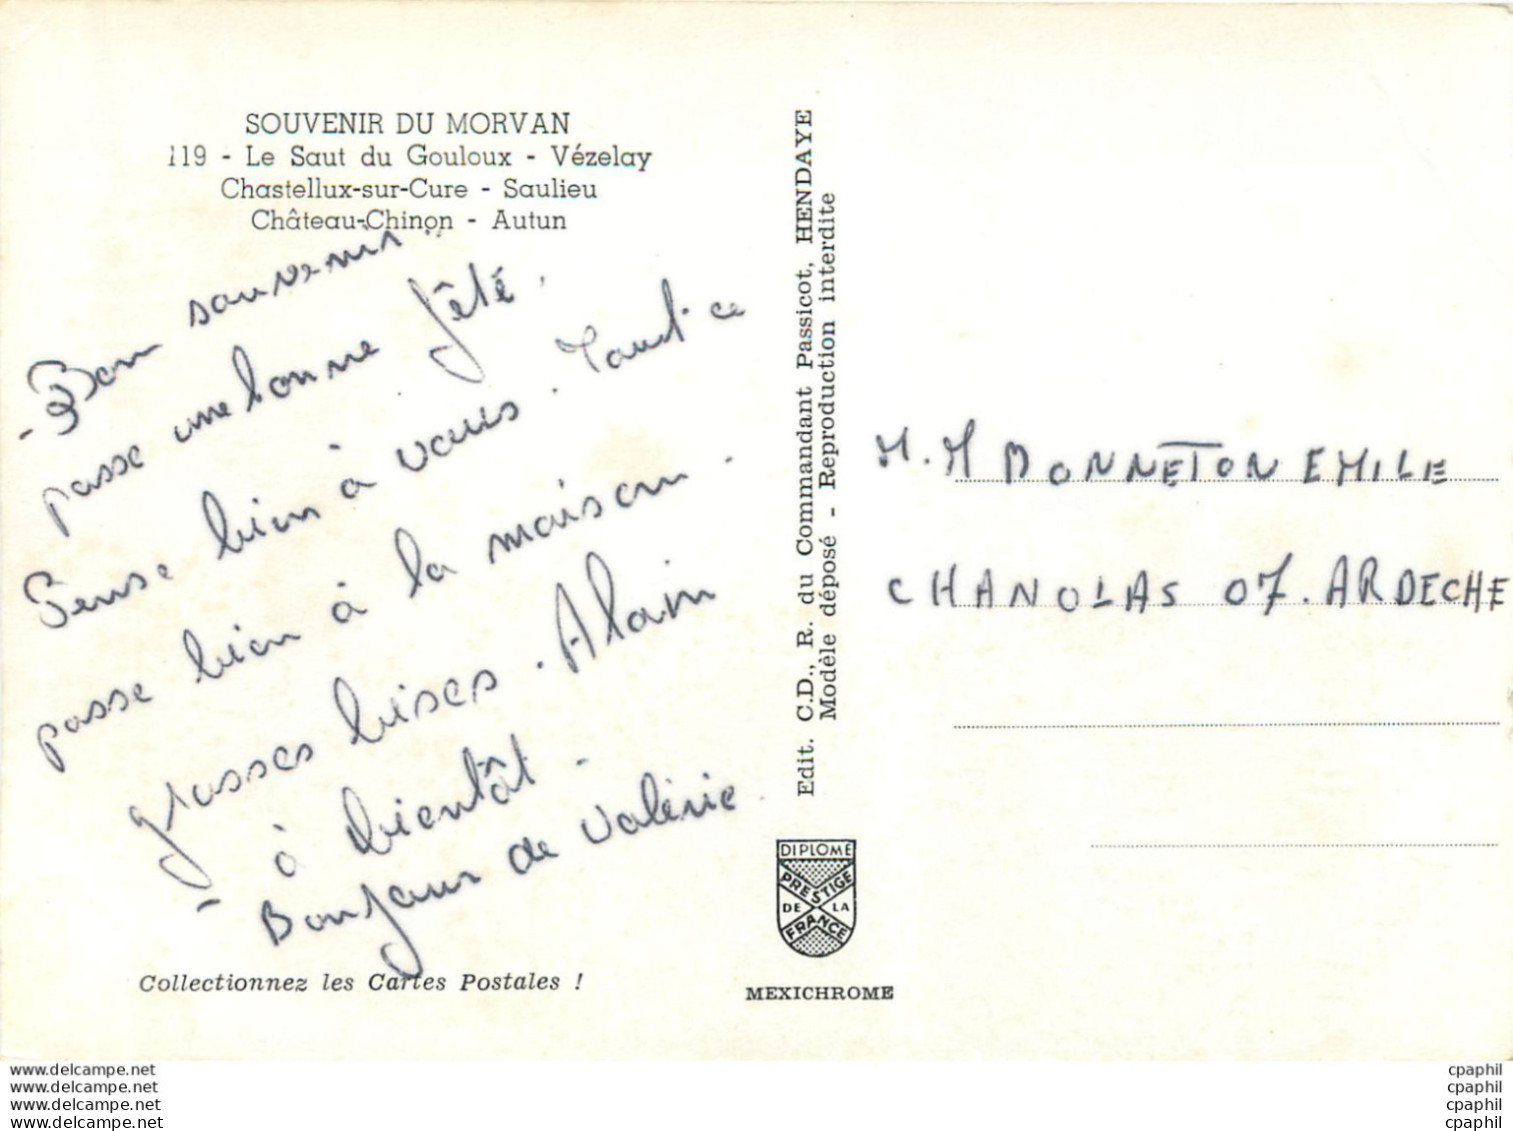 SOUVENIR DU MORVAN
119 - Le Saut du Gouloux - Vézelay
Chastellux-sur-Cure - Saulieu
Château-Chinon - Autun
- Bon souvenir..
passe une bonne fêté.
Pense bien à vous. Tout ce
passe bien à la maison.
grosses bises. Alain
à bientôt -
- Bonjour de Valérie
Collectionnez les Cartes Postales !
Edit. C.D., R. du Commandant Passicot, HENDAYE
Modèle déposé - Reproduction interdite
DIPLOME
PRESTIGE
DE LA
FRANCE
MEXICHROME
M. M BONNETON EMILE
CHANOLAS 07. ARDECHE
www.delcampe.net
www.delcampe.net
www.delcampe.net
www.delcampe.net
cpaphil
cpaphil
cpaphil
cpaphil